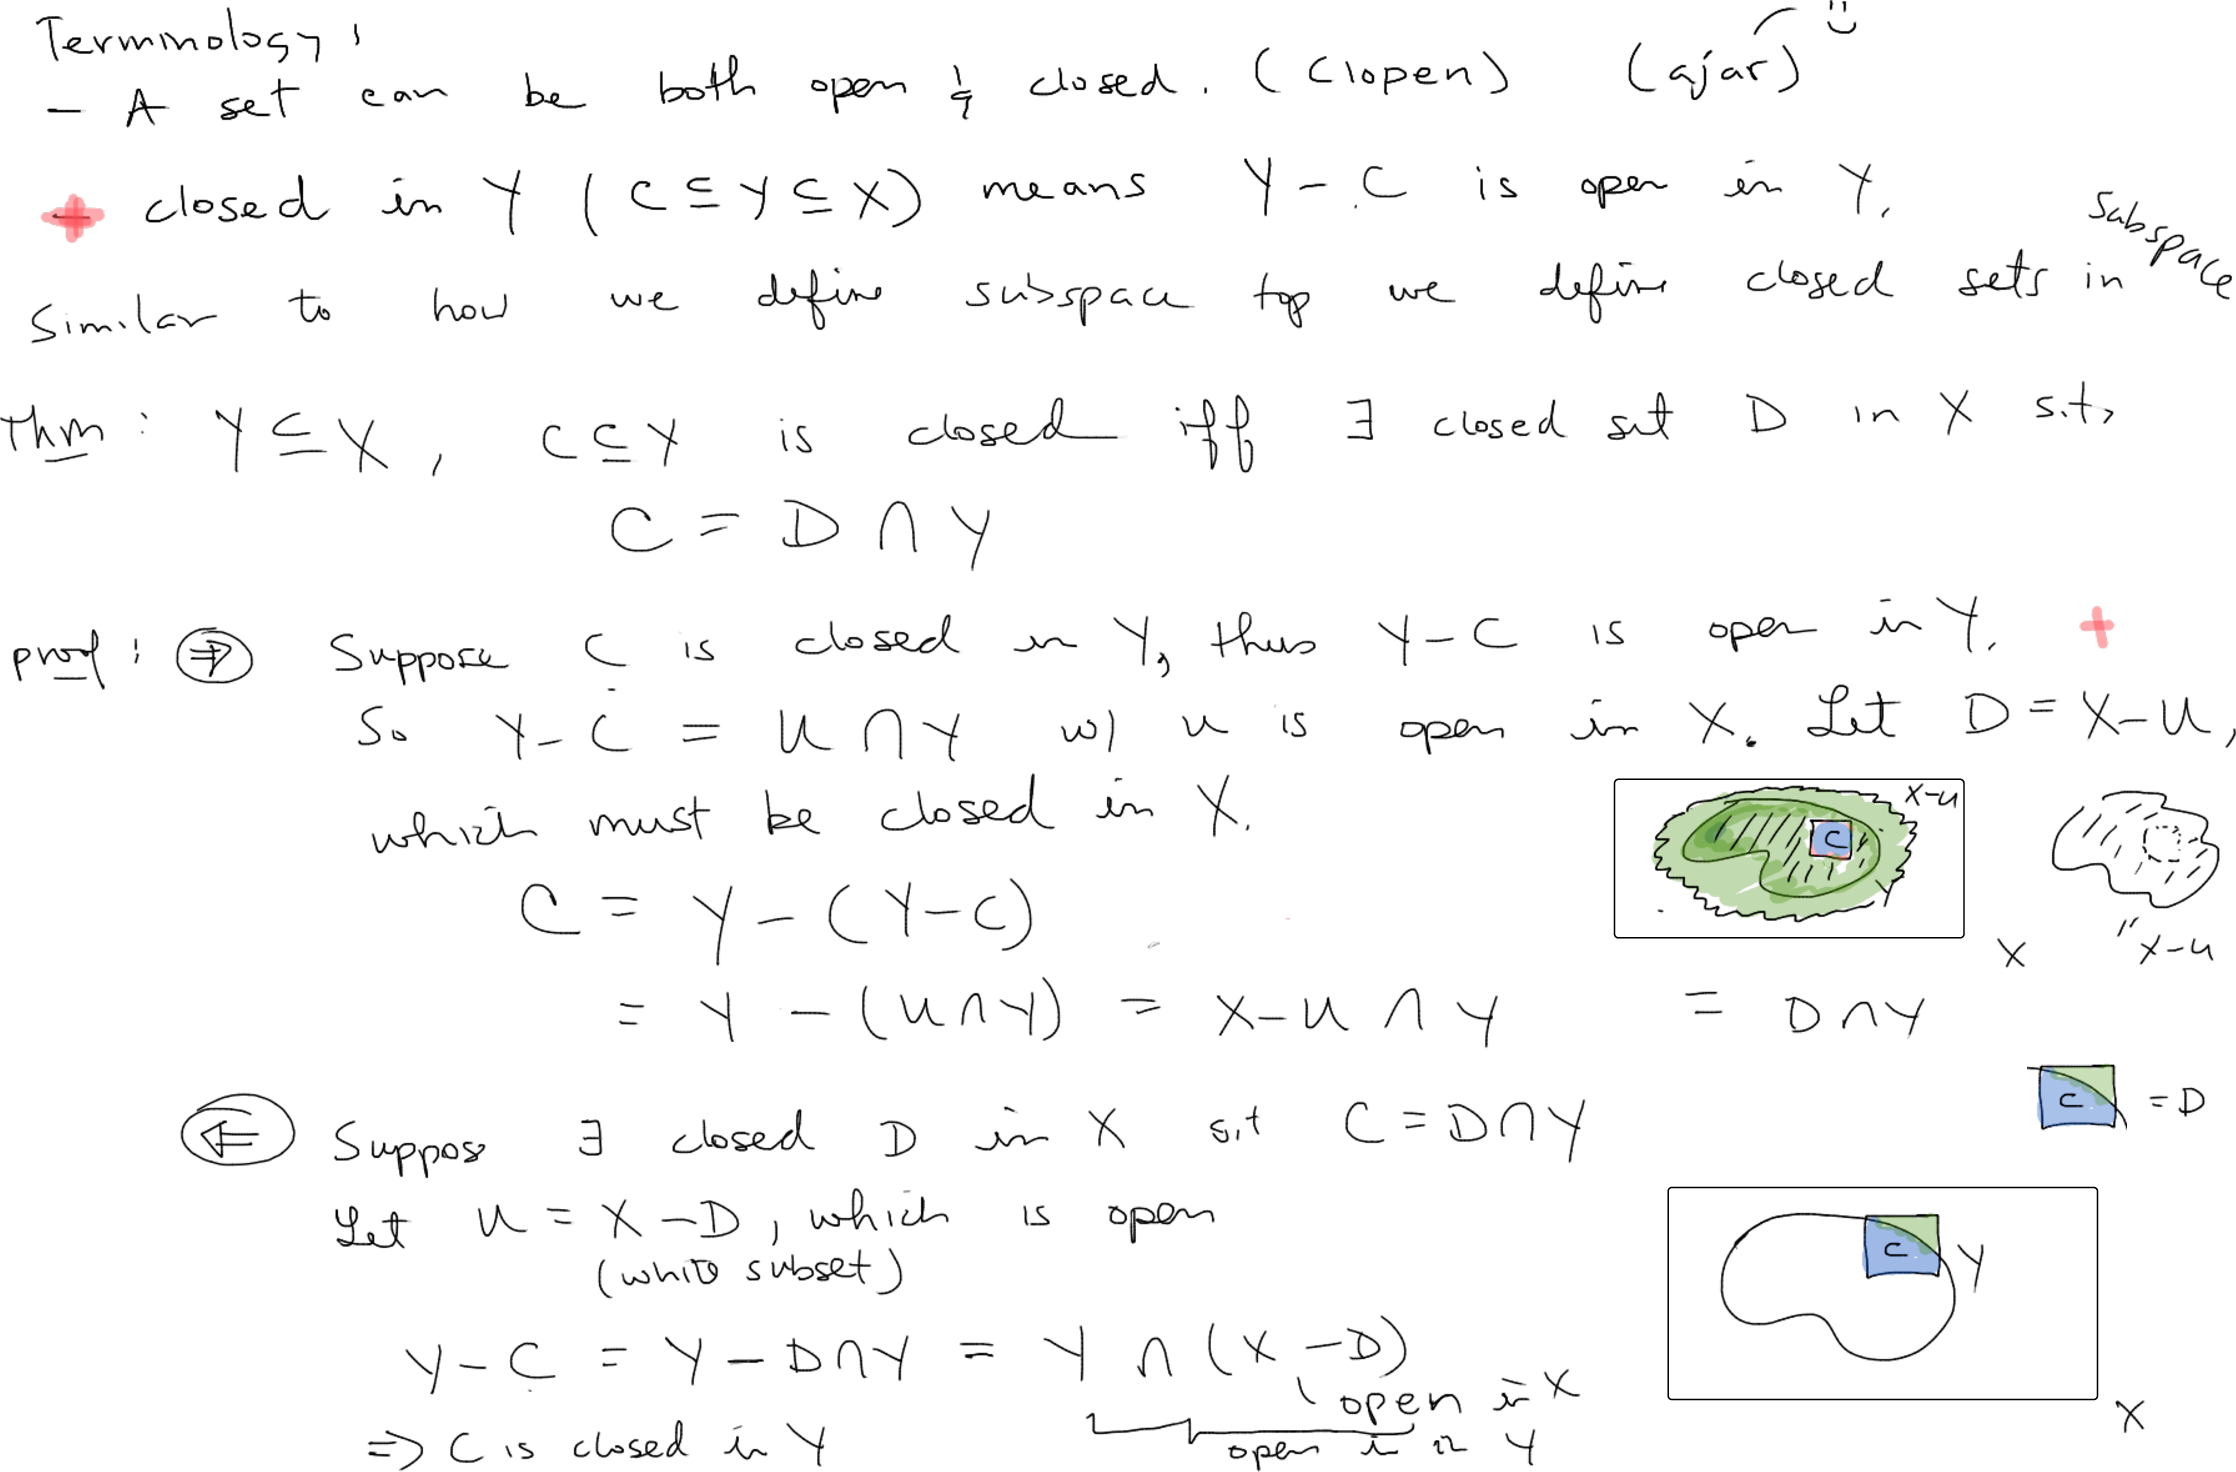 Terminology:
- A set can be both open & closed. (Clopen) (ajar)
closed in Y (C ⊆ Y ⊆ X) means Y - C is open in Y.
Similar to how we define subspace top we define closed sets in subspace
Thm: Y ⊆ X, C ⊆ Y is closed iff ∃ closed set D in X s.t.
C = D ∩ Y
proof: ⇒ Suppose C is closed in Y, thus Y - C is open in Y. +
So Y - C = U ∩ Y w/ U is open in X. Let D = X - U,
which must be closed in X.
X-U
C
Y
X
" X-U
C = Y - (Y - C)
= Y - (U ∩ Y) = X - U ∩ Y = D ∩ Y
C = D
⇐ Suppose ∃ closed D in X s.t C = D ∩ Y
Let U = X - D, which is open
(white subset)
C Y
X
Y - C = Y - D ∩ Y = Y ∩ (X - D)
open in X
⇒ C is closed in Y
open in Y